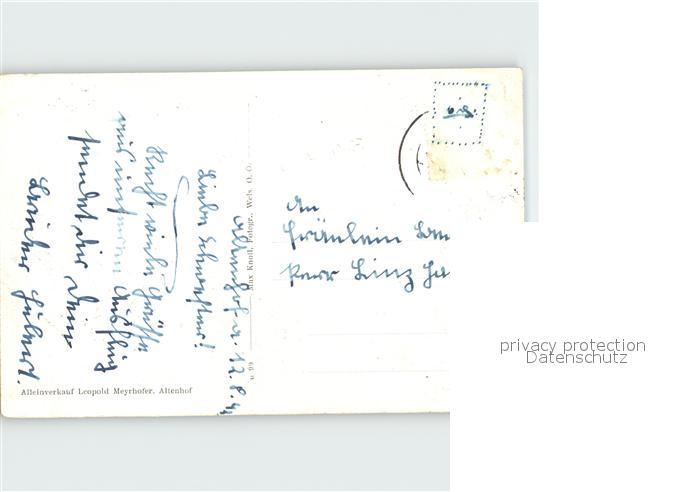 Altenhof a. 12.8.
Liebe Schwester!
Recht viele Grüße
von unserem Ausflug
sendet dir dein
Bruder Hubert.
An
Fräulein
Linz
Max Knoll, Fotogr., Wels, O. Ö.
Alleinverkauf Leopold Meyrhofer, Altenhof
privacy protection
Datenschutz